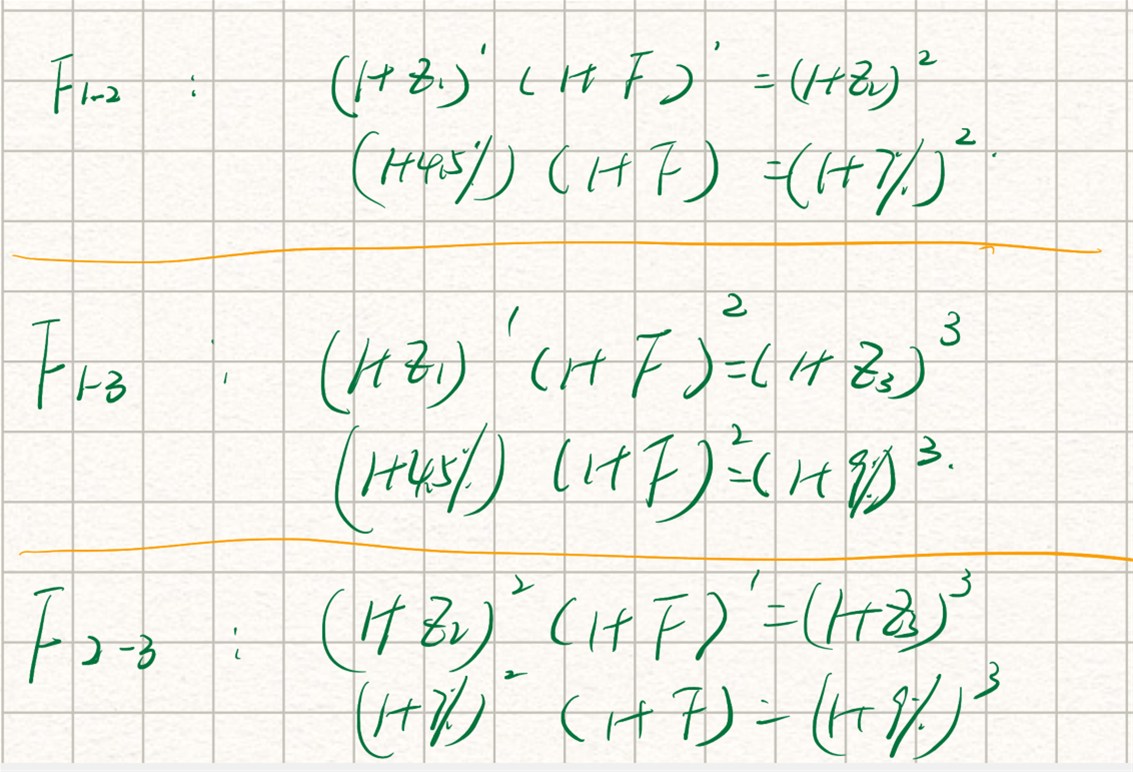 F₁₋₂ : (1+Z₁)¹ (1+F)¹ = (1+Z₂)²
(1+4.5%) (1+F) = (1+7%)².
F₁₋₃ : (1+Z₁)¹ (1+F)² = (1+Z₃)³
(1+4.5%) (1+F)² = (1+9%)³.
F₂₋₃ : (1+Z₂)² (1+F)¹ = (1+Z₃)³
(1+7%)² (1+F) = (1+9%)³